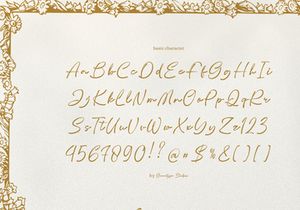 basic character
AaBbCcDdEeFfGgHhIi
JjKkLlMmNnOoPpQqRr
SsTtUuVvWwXxYyZz123
4567890!?@#$%&()[]
by